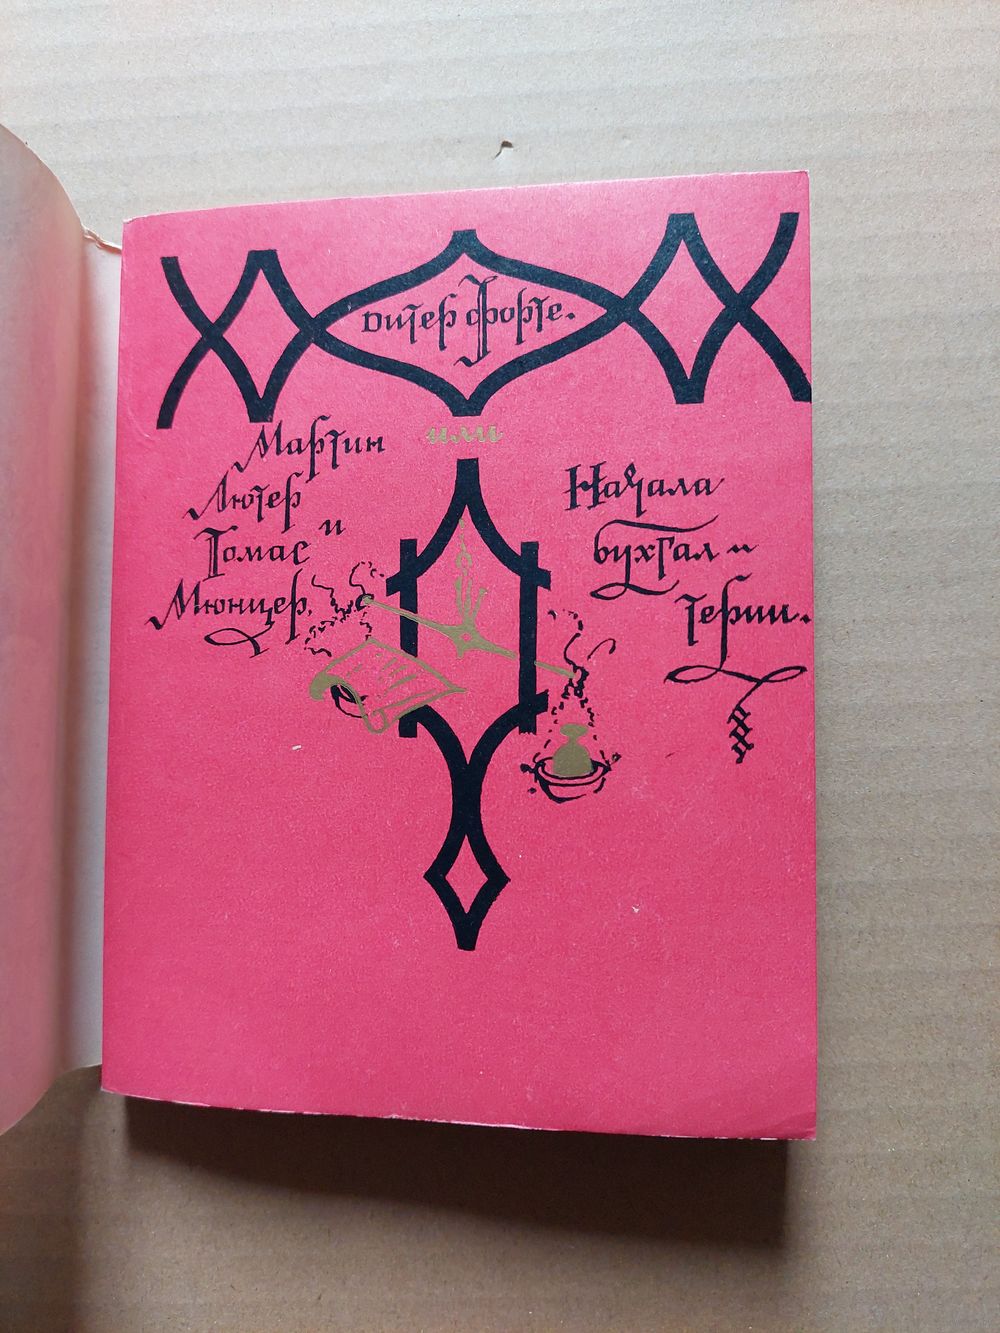 Дитер Форте.
Мартин
Лютер
и
Томас
Мюнцер,
или
Начала
бухгал
терии.